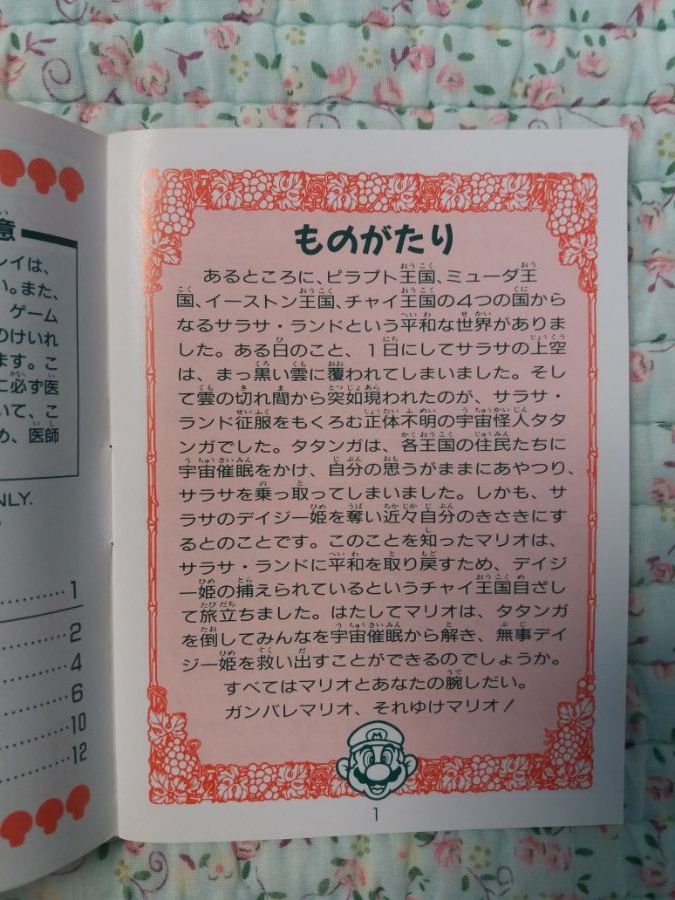 意
ンイは、
い。また、
ゲーム
のけいれ
ます。こ
に必ず医
いて、こ
め、医師
NLY.
1
2
4
6
10
12
ものがたり
あるところに、ピラプト王国、ミューダ王
国、イーストン王国、チャイ王国の4つの国から
なるサラサ・ランドという平和な世界がありま
した。ある日のこと、1日にしてサラサの上空
は、まっ黒い雲に覆われてしまいました。そし
て雲の切れ間から突如現われたのが、サラサ・
ランド征服をもくろむ正体不明の宇宙怪人タタ
ンガでした。タタンガは、各王国の住民たちに
宇宙催眠をかけ、自分の思うがままにあやつり、
サラサを乗っ取ってしまいました。しかも、サ
ラサのデイジー姫を奪い近々自分のきさきにす
るとのことです。このことを知ったマリオは、
サラサ・ランドに平和を取り戻すため、デイジ
ー姫の捕えられているというチャイ王国目ざし
て旅立ちました。はたしてマリオは、タタンガ
を倒してみんなを宇宙催眠から解き、無事デイ
ジー姫を救い出すことができるのでしょうか。
すべてはマリオとあなたの腕しだい。
ガンバレマリオ、それゆけマリオ!
M
1